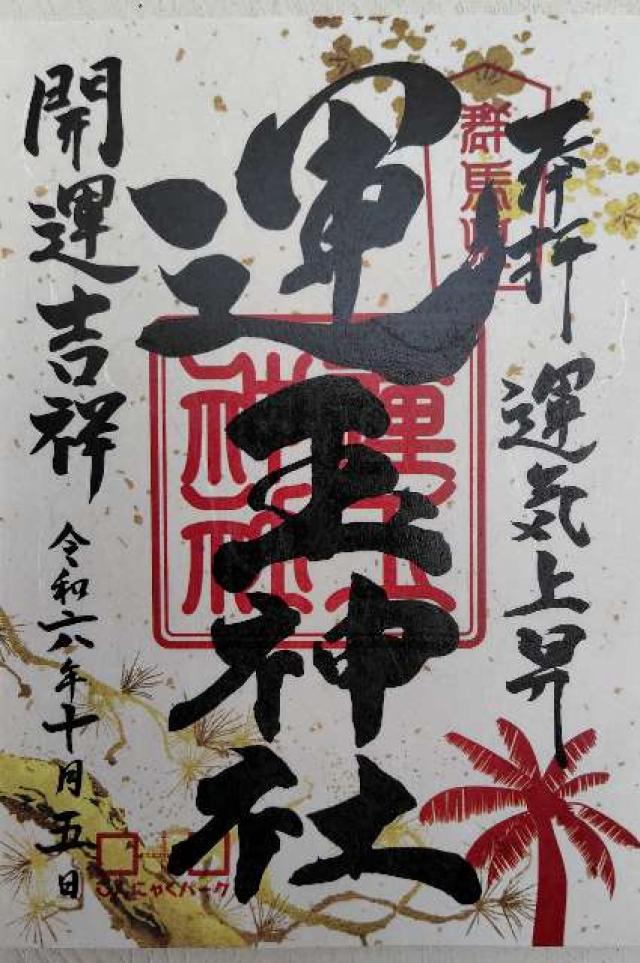 奉拝
運気上昇
群馬県
運玉神社
運玉神社
開運吉祥
令和六年十月五日
こんにゃくパーク